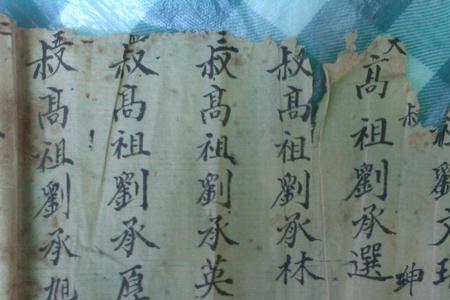 祖劉文
叔
高祖劉承選
叔高祖劉承林
叔高祖劉承英
叔高祖劉承
叔高祖劉承旭